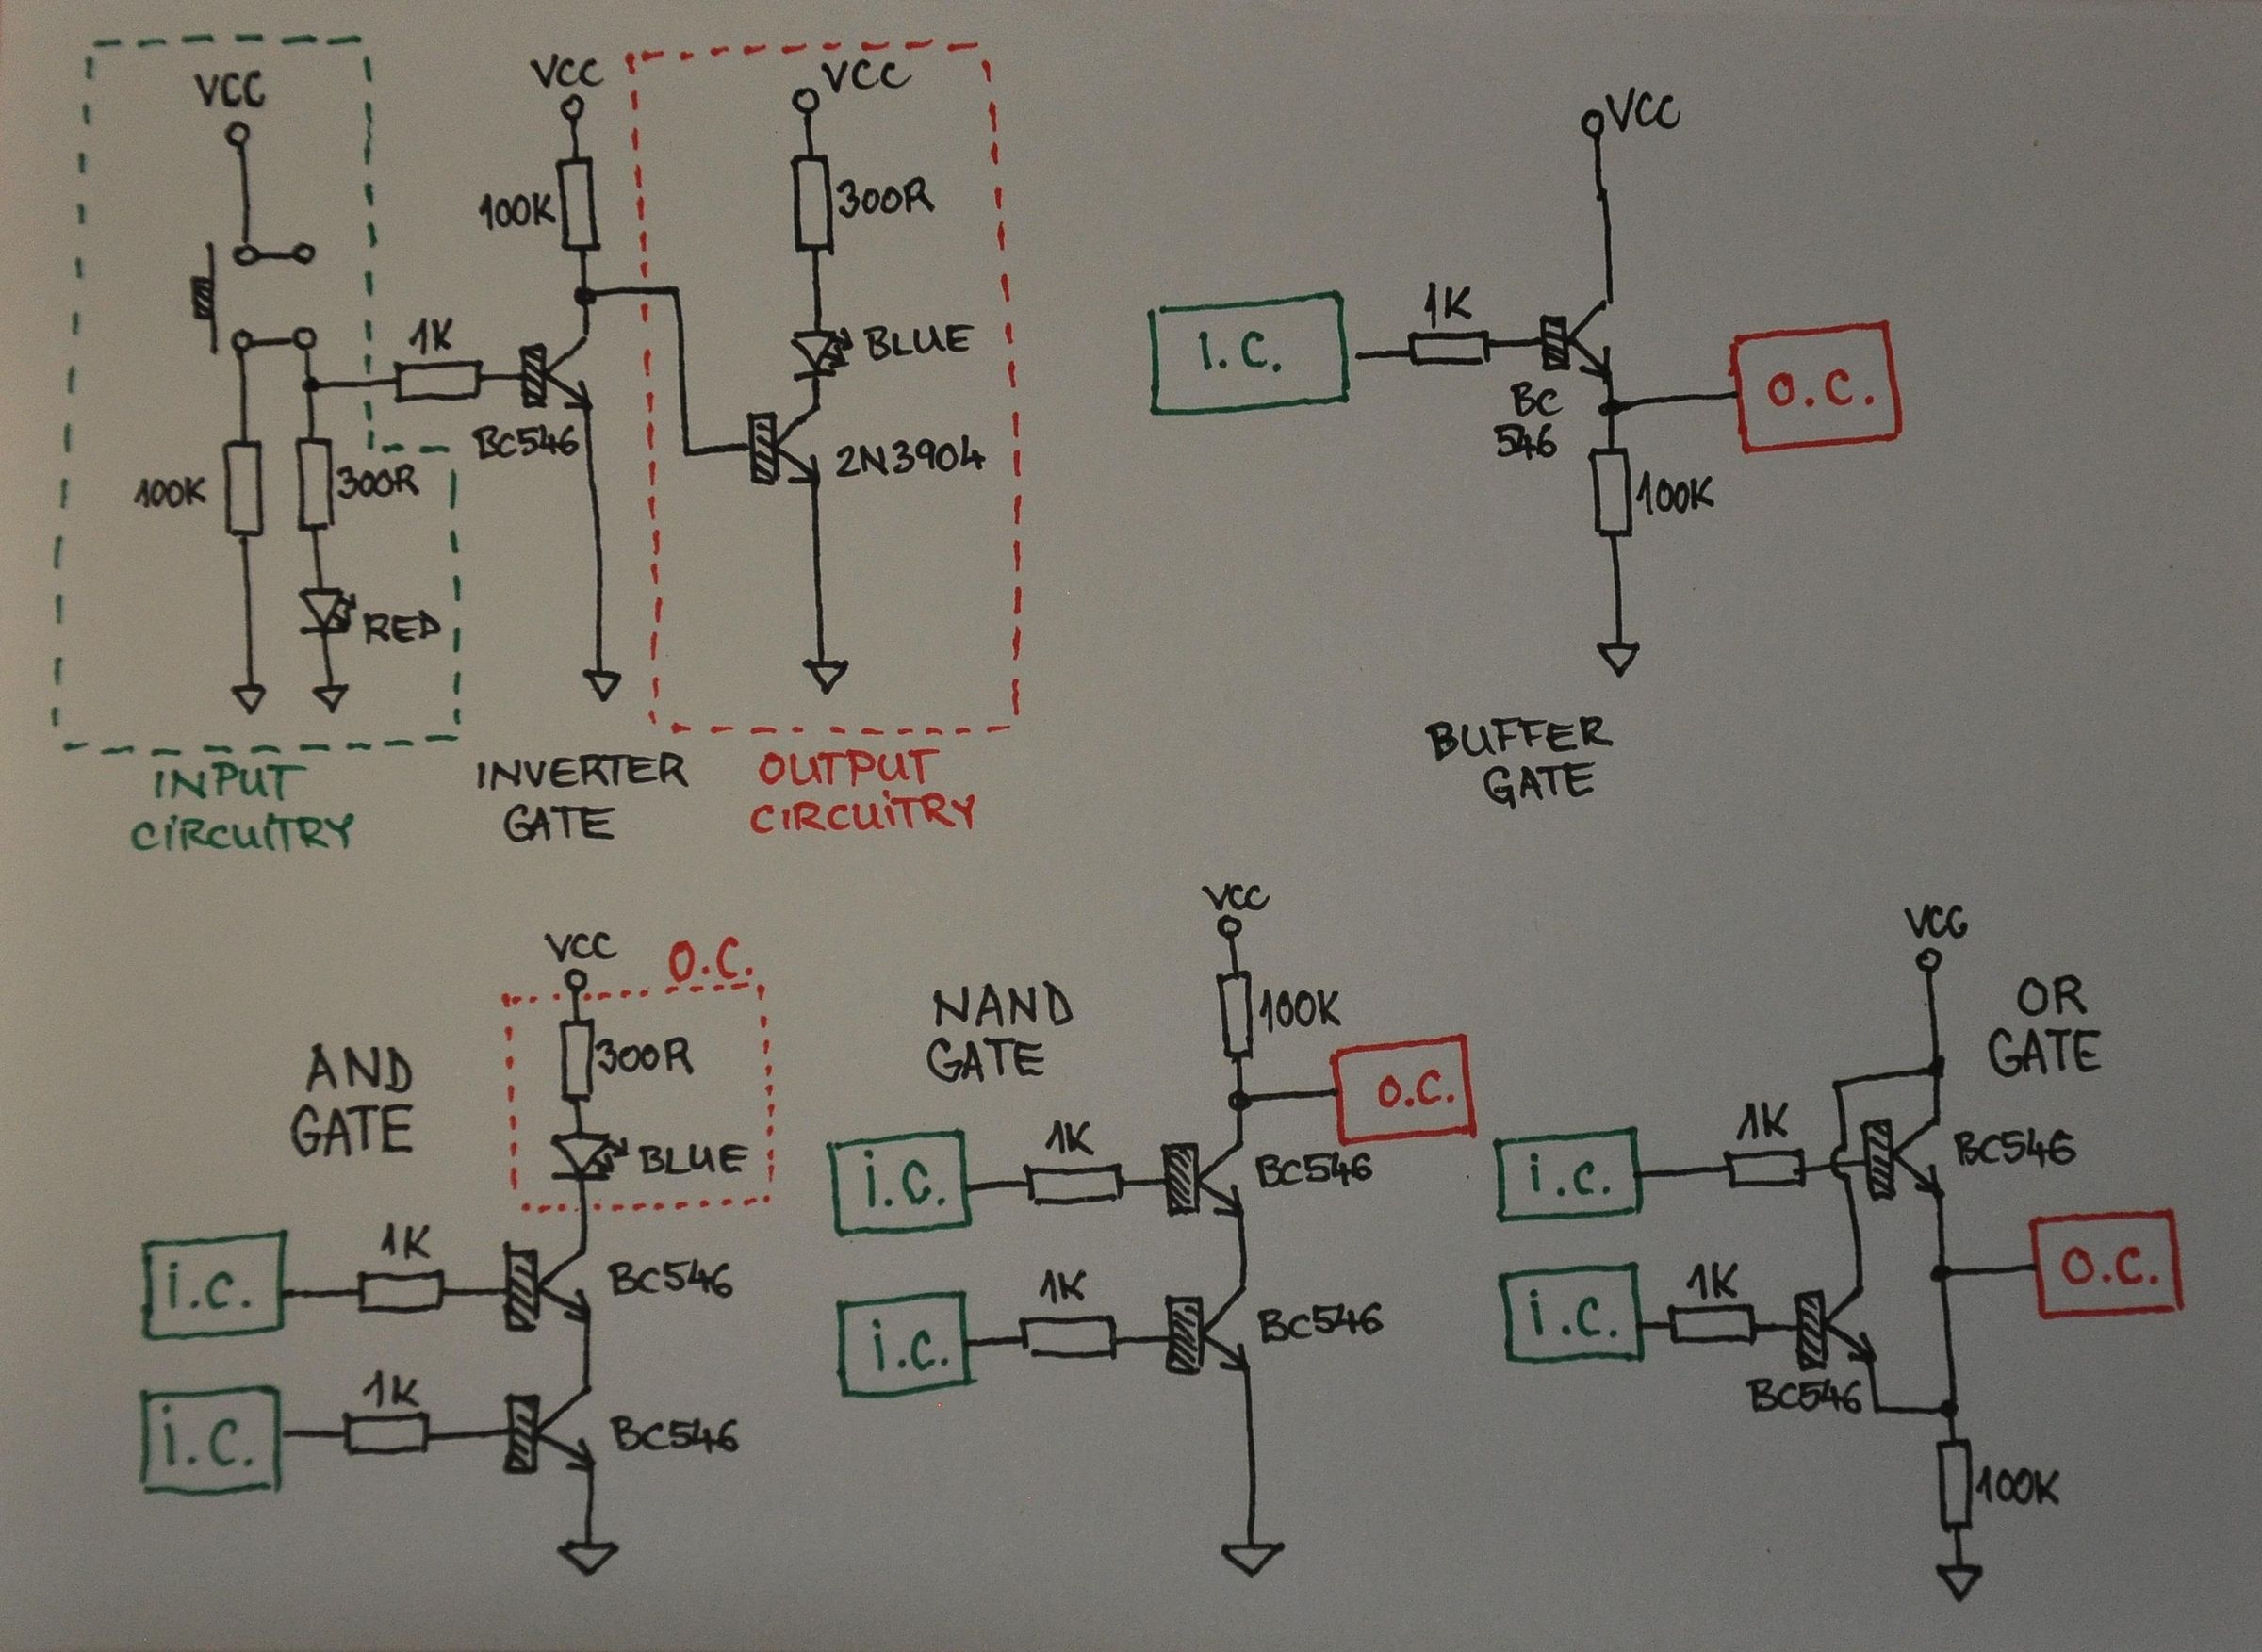 VCC
VCC
VCC
100K
300R
1K
BLUE
BC546
2N3904
100K
300R
RED
INPUT
CIRCUITRY
INVERTER
GATE
OUTPUT
CIRCUITRY
VCC
I.C.
1K
BC
546
O.C.
100K
BUFFER
GATE
AND
GATE
VCC
O.C.
300R
BLUE
i.c.
1K
BC546
i.c.
1K
BC546
NAND
GATE
VCC
100K
O.C.
i.c.
1K
BC546
i.c.
1K
BC546
OR
GATE
VCC
i.c.
1K
BC546
i.c.
1K
BC546
O.C.
100K